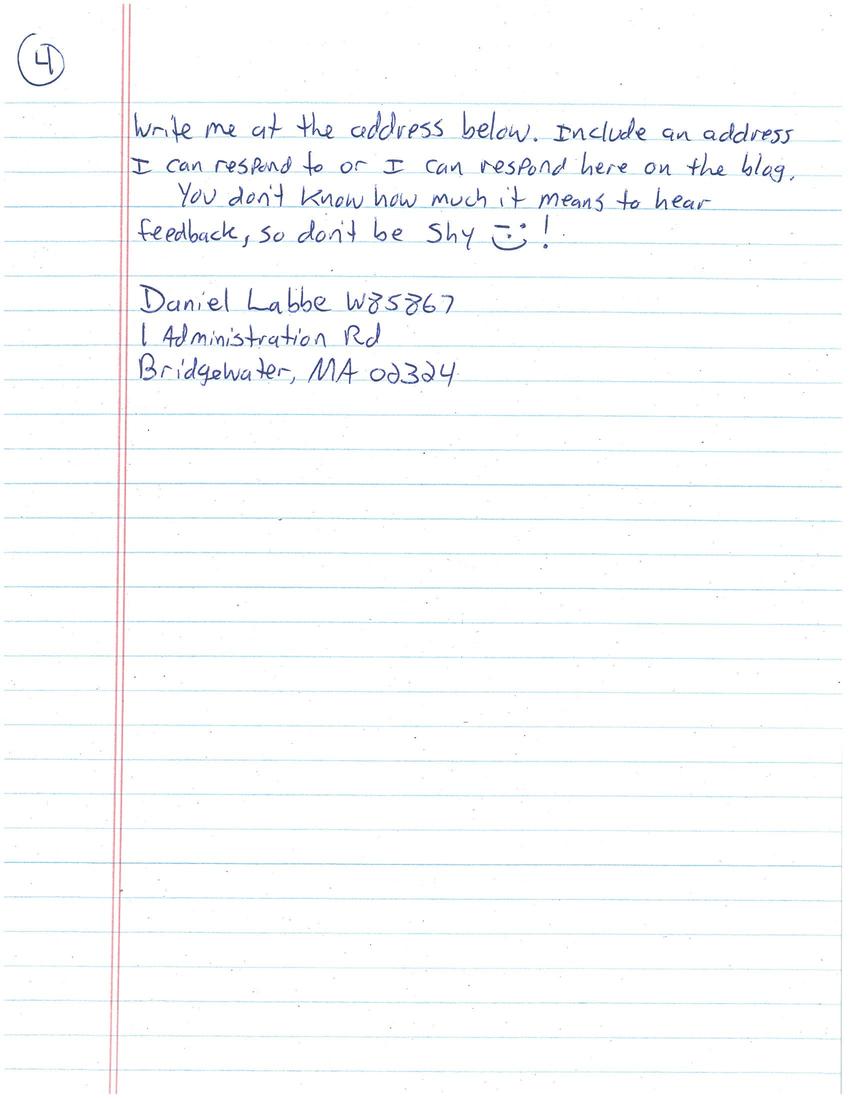 4
Write me at the address below. Include an address
I can respond to or I can respond here on the blog.
You don't know how much it means to hear
feedback, so don't be shy !
Daniel Labbe W85867
1 Administration Rd
Bridgewater, MA 02324